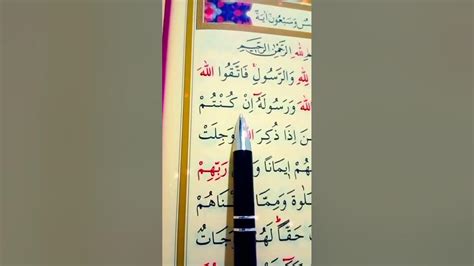 وَسَبْعُونَ اٰيَةً
اللّٰهِ الرَّحْمٰنِ الرَّحِيمِ
لِلّٰهِ وَالرَّسُولِۚ فَاتَّقُوا اللّٰهَ
اللّٰهَ وَرَسُولَهُٓ اِنْ كُنْتُمْ
اِذَا ذُكِرَ وَجِلَتْ
هُمْ اِيمَانًا رَبِّهِمْ
لٰوةَ وَمِمَّا نَاهُمْ
حَقًّا لَهُ جَاتٌ